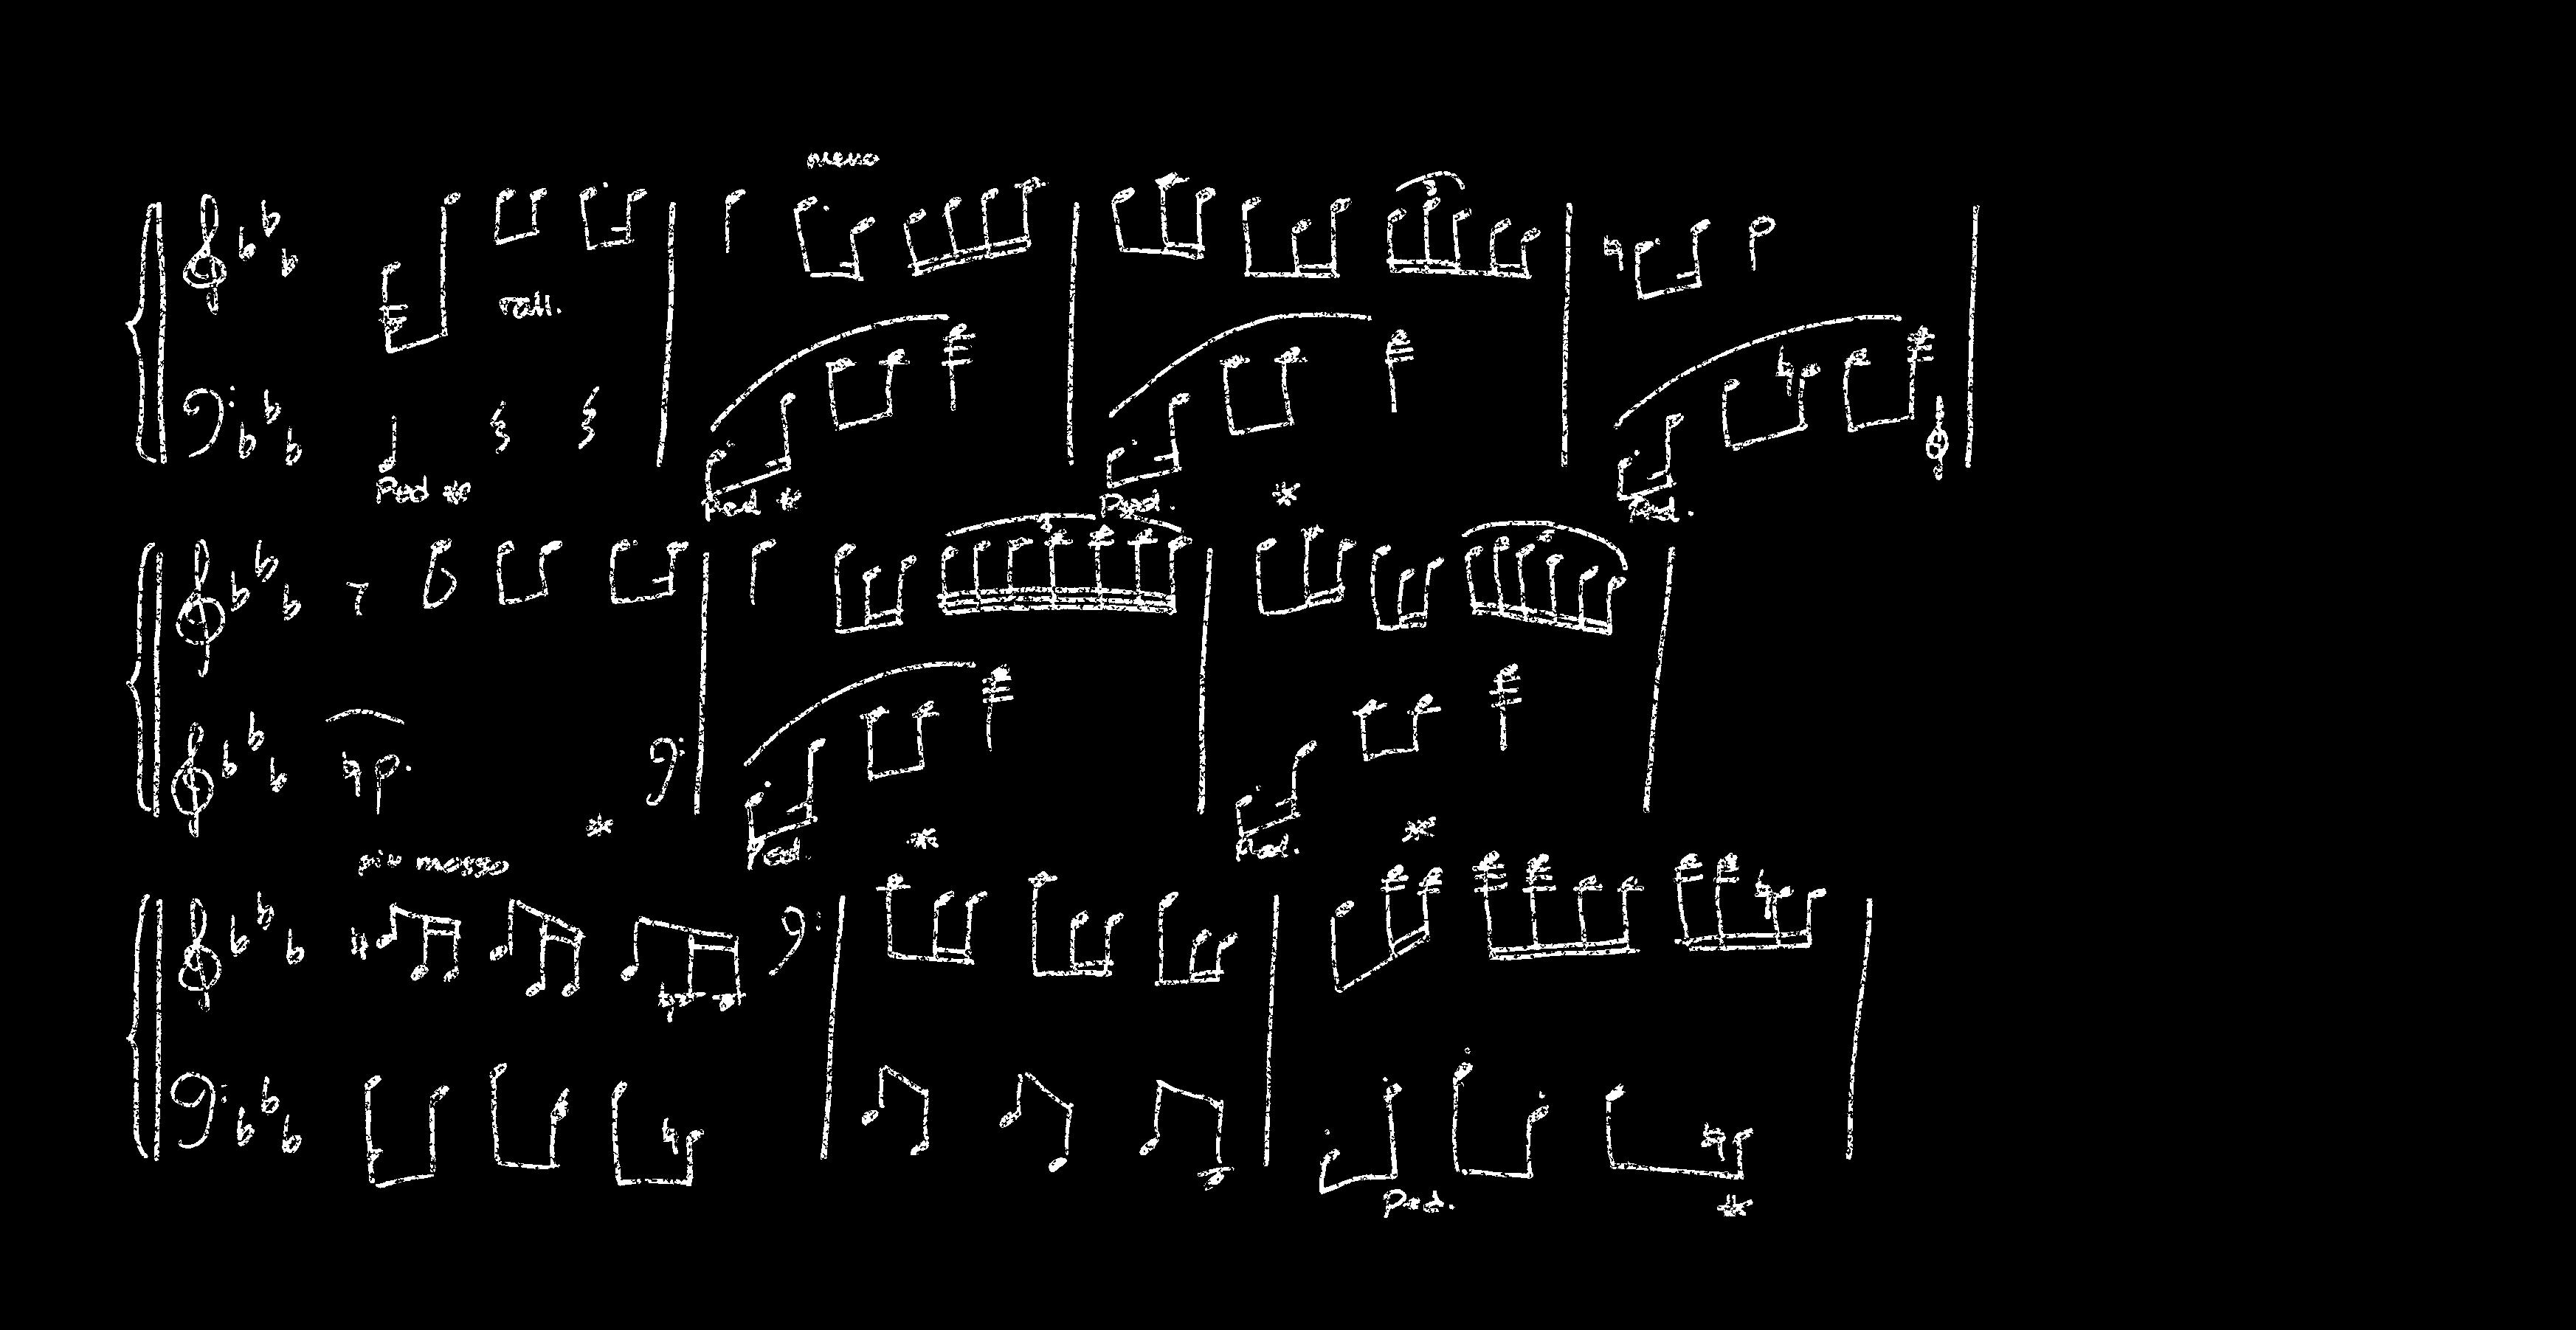 meno
rall.
Ped * Ped * Ped. * Ped.
3
* Ped. * Ped. *
più mosso
Ped. *